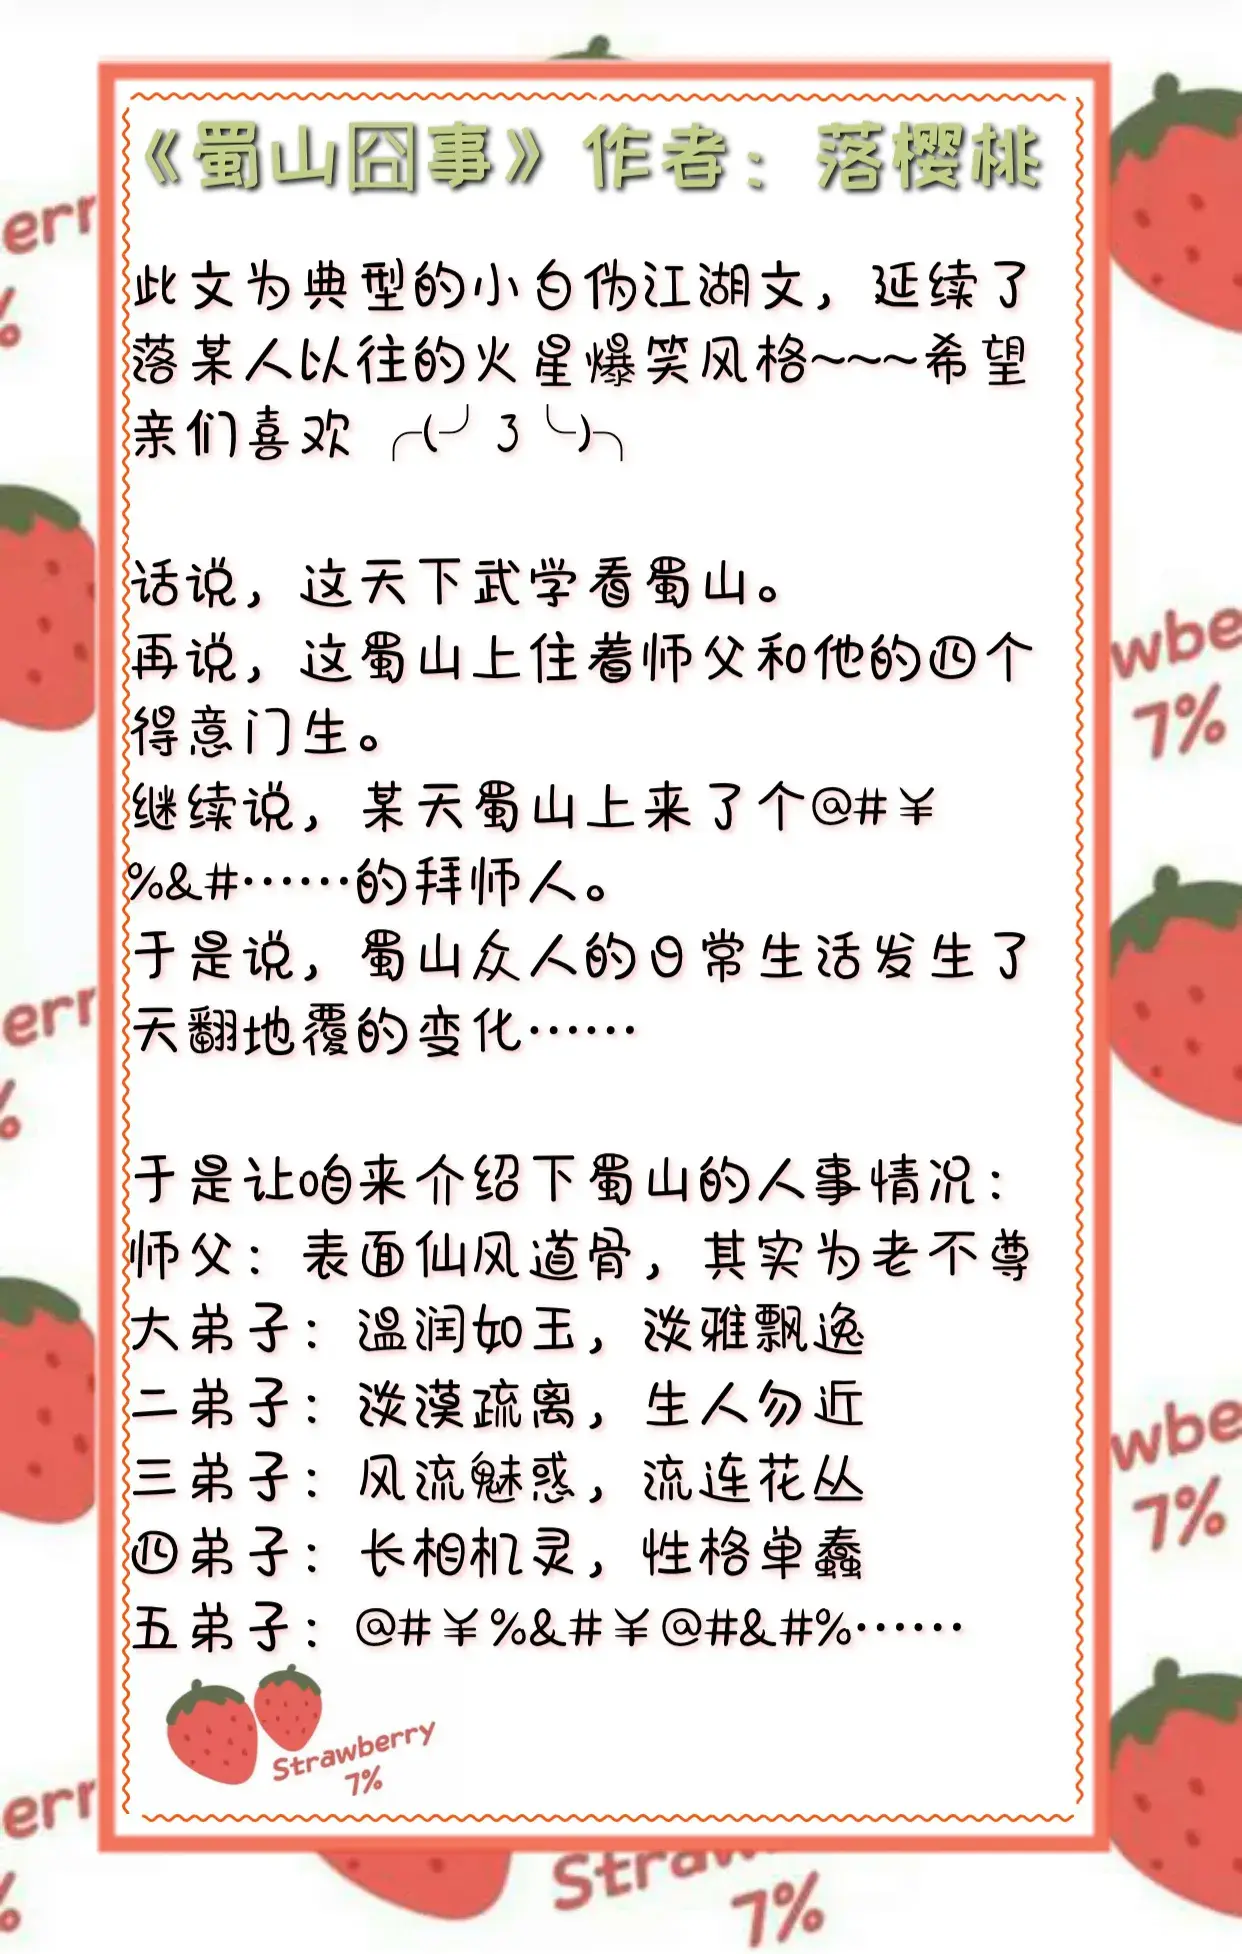 《蜀山囧事》作者：落樱桃
此文为典型的小白伪江湖文，延续了
落某人以往的火星爆笑风格~~~希望
亲们喜欢 ╭(╯3╰)╮
话说，这天下武学看蜀山。
再说，这蜀山上住着师父和他的四个
得意门生。
继续说，某天蜀山上来了个@#￥
%&#……的拜师人。
于是说，蜀山众人的日常生活发生了
天翻地覆的变化……
于是让咱来介绍下蜀山的人事情况：
师父：表面仙风道骨，其实为老不尊
大弟子：温润如玉，淡雅飘逸
二弟子：淡漠疏离，生人勿近
三弟子：风流魅惑，流连花丛
四弟子：长相机灵，性格单蠢
五弟子：@#￥%&#￥@#&#%……
Strawberry
7%
7%
7%
7%